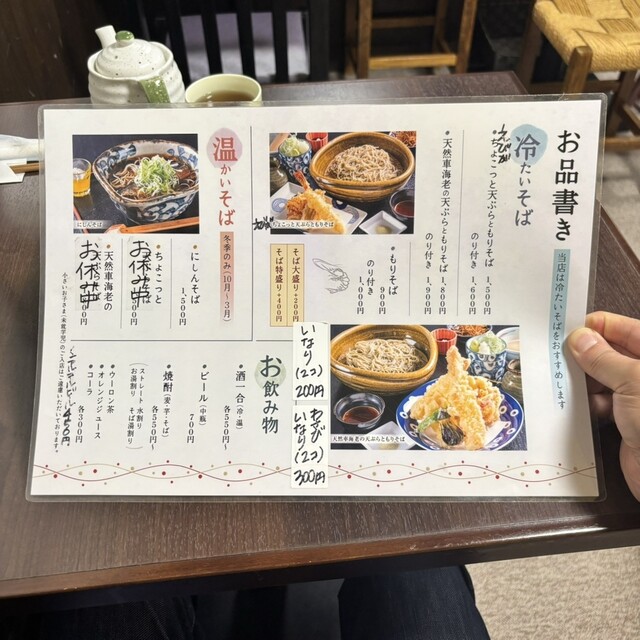 お品書き
当店は冷たいそばをおすすめします
冷たいそば
ちょこっと天ぷらともりそば 1,500円
のり付き 1,600円
天然車海老の天ぷらともりそば 1,800円
のり付き 1,900円
もりそば 900円
のり付き 1,000円
そば大盛り+200円
そば特盛り+400円
ちょこっと天ぷらともりそば
天然車海老の天ぷらともりそば
温かいそば
冬季のみ(10月〜3月)
にしんそば
にしんそば 1,500円
ちょこっと
お休み中
天然車海老の
お休み中
お飲み物
酒一合(冷・温) 各550円〜
ビール(中瓶) 700円
焼酎(麦・芋・そば) 各550円〜
ストレート 水割り
お湯割り そば湯割り
ウーロン茶
オレンジジュース
コーラ
各300円
いなり(2コ) 200円
わさび
いなり(2コ) 300円
小さいお子さま(未就学児)のご入店はご遠慮いただいております。